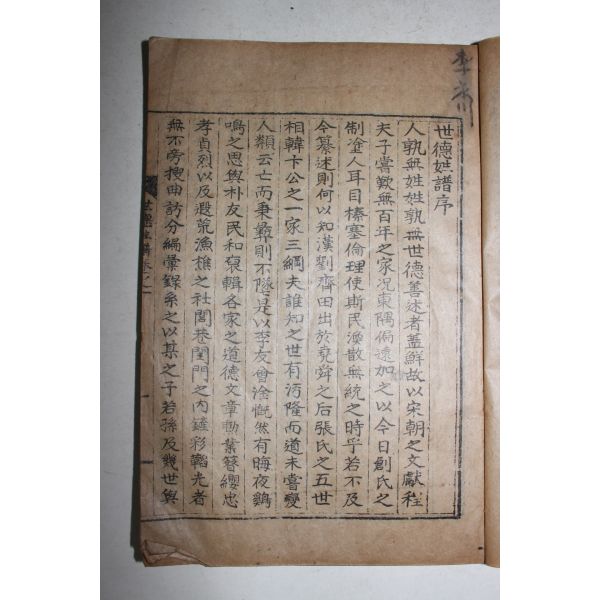 世德姓譜序
人孰無姓姓孰無世德善述者蓋鮮故以宋朝之文獻程
夫子嘗歎無百年之家况東隅偏遠加之以今日創氏之
制塗人耳目榛塞倫理使斯民渙散無統之時乎若不及
今纂述則何以知漢劉齊田出於堯舜之后張氏之五世
相韓卞公之一家三綱夫誰知之世有汚隆而道未嘗變
人類云亡而秉彝則不墜是以李友會淦慨然有晦夜鷄
鳴之思與朴友民和裒輯各家之道德文章勳業簪纓忠
孝貞烈以及遐荒漁樵之社閭巷閨門之內鏟彩韜光者
無不旁搜曲訪分編彙錄系之以某之子若孫及幾世與
世德姓譜卷之一